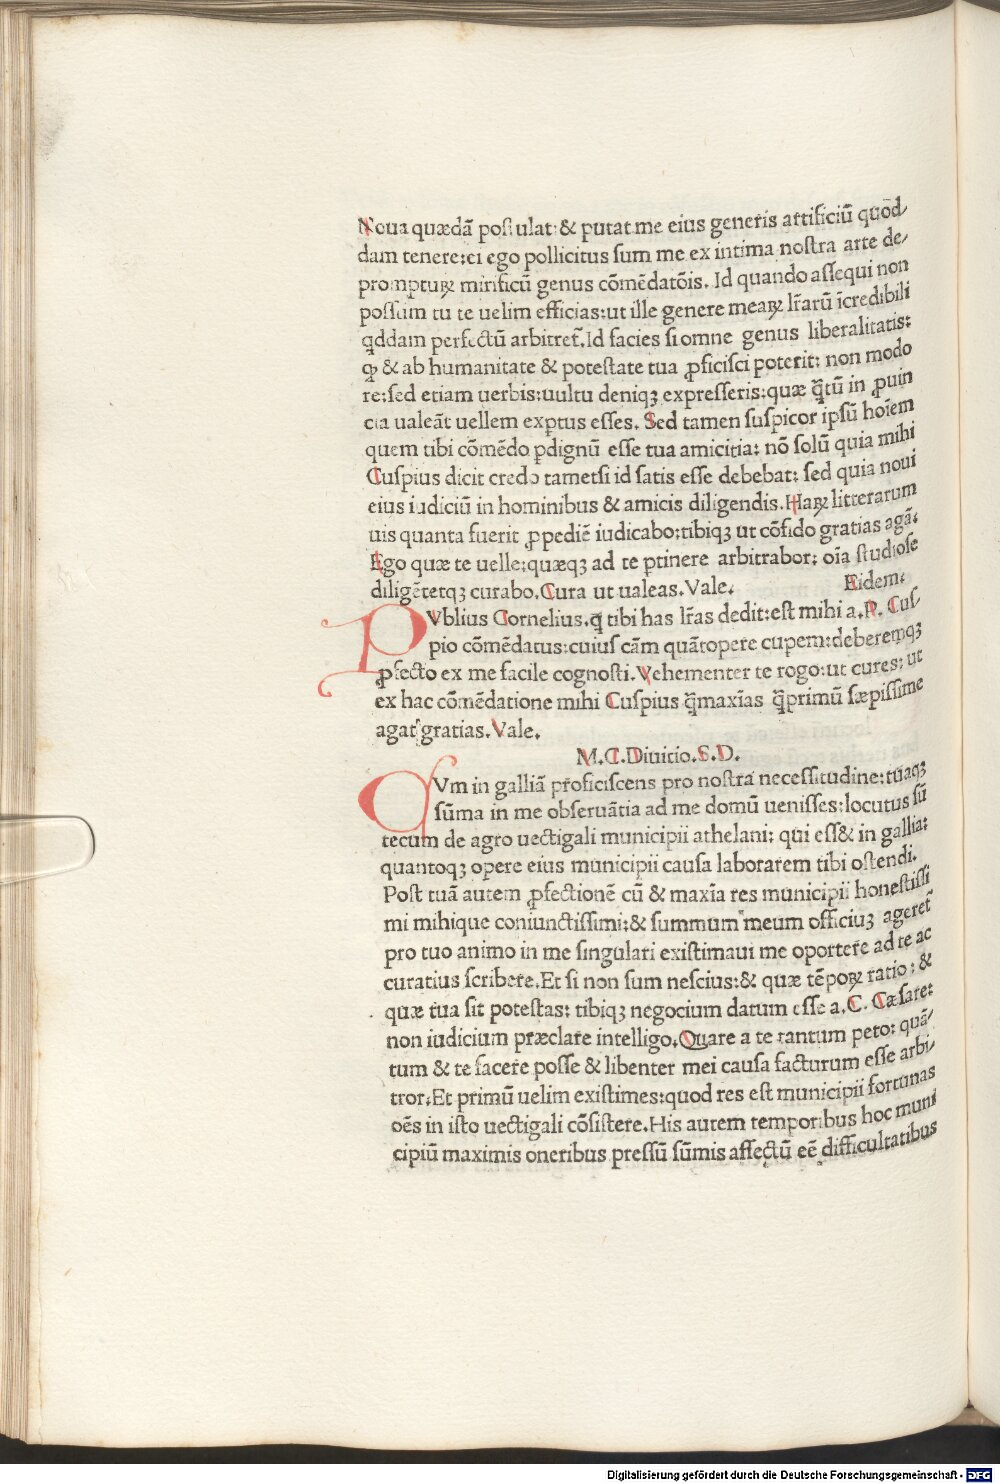 Noua quædã postulat: & putat me eius generis artificiũ quod/
dam tenere: ei ego pollicitus sum me ex intima nostra arte de/
promptuꝝ mirificũ genus cõmẽdatõis. Id quando assequi non
possum tu te uelim efficias: ut ille genere meaꝝ lr̃arũ ĩcredibili
qddam perfectũ arbitret̃. Id facies si omne genus liberalitatis:
ꝙ & ab humanitate & potestate tua ꝓficisci poterit: non modo
re: sed etiam uerbis: uultu deniqꝫ expresseris: quæ q̃tũ in ꝓuin
cia ualeãt uellem exꝑtus esses. Sed tamen suspicor ipsũ hoĩem
quem tibi cõmẽdo ꝑdignũ esse tua amicitia: nõ solũ quia mihi
Cuspius dicit credo tametsi id satis esse debebat: sed quia noui
eius iudiciũ in hominibus & amicis diligendis. Haꝝ litterarum
uis quanta fuerit ꝓpediẽ iudicabo: tibiqꝫ ut cõfido gratias agã.
Ego quæ te uelle: quæqꝫ ad te ꝑtinere arbitrabor: oĩa studiose
diligẽtetqꝫ curabo. Cura ut ualeas. Vale. Eidem.
PVblius Cornelius. q̃ tibi has lr̃as dedit: est mihi a. P. Cus/
pio cõmẽdatus: cuius cãm quãtopere cupem: deberemqꝫ
ꝓfecto ex me facile cognosti. Vehementer te rogo: ut cures: ut
ex hac cõmẽdatione mihi Cuspius q̃maxĩas q̃primũ sæpissime
agat gratias. Vale.
M. C. Diuitio. S. D.
CVm in galliã proficiscens pro nostra necessitudine: tuaqꝫ
sũma in me obseruãtia ad me domũ uenisses: locutus sũ
tecum de agro uectigali municipii athelani: qui ess& in gallia:
quantoqꝫ opere eius municipii causa laborarem tibi ostendi.
Post tuã autem ꝓfectionẽ cũ & maxĩa res municipii honestissi
mi mihique coniunctissimi: & summum meum officiuꝫ ageret̃
pro tuo animo in me singulari existimaui me oportere ad te ac
curatius scribere. Et si non sum nescius: & quæ tẽpoꝝ ratio: &
quæ tua sit potestas: tibiqꝫ negocium datum esse a. C. Cæsare:
non iudicium præclare intelligo. Quare a te tantum peto: quã/
tum & te facere posse & libenter mei causa facturum esse arbi/
tror. Et primũ uelim existimes: quod res est municipii fortunas
oẽs in isto uectigali cõsistere. His autem temporibus hoc muni
cipiũ maximis oneribus pressũ sũmis affectũ eẽ difficultatibus
Digitalisierung gefördert durch die Deutsche Forschungsgemeinschaft - DFG